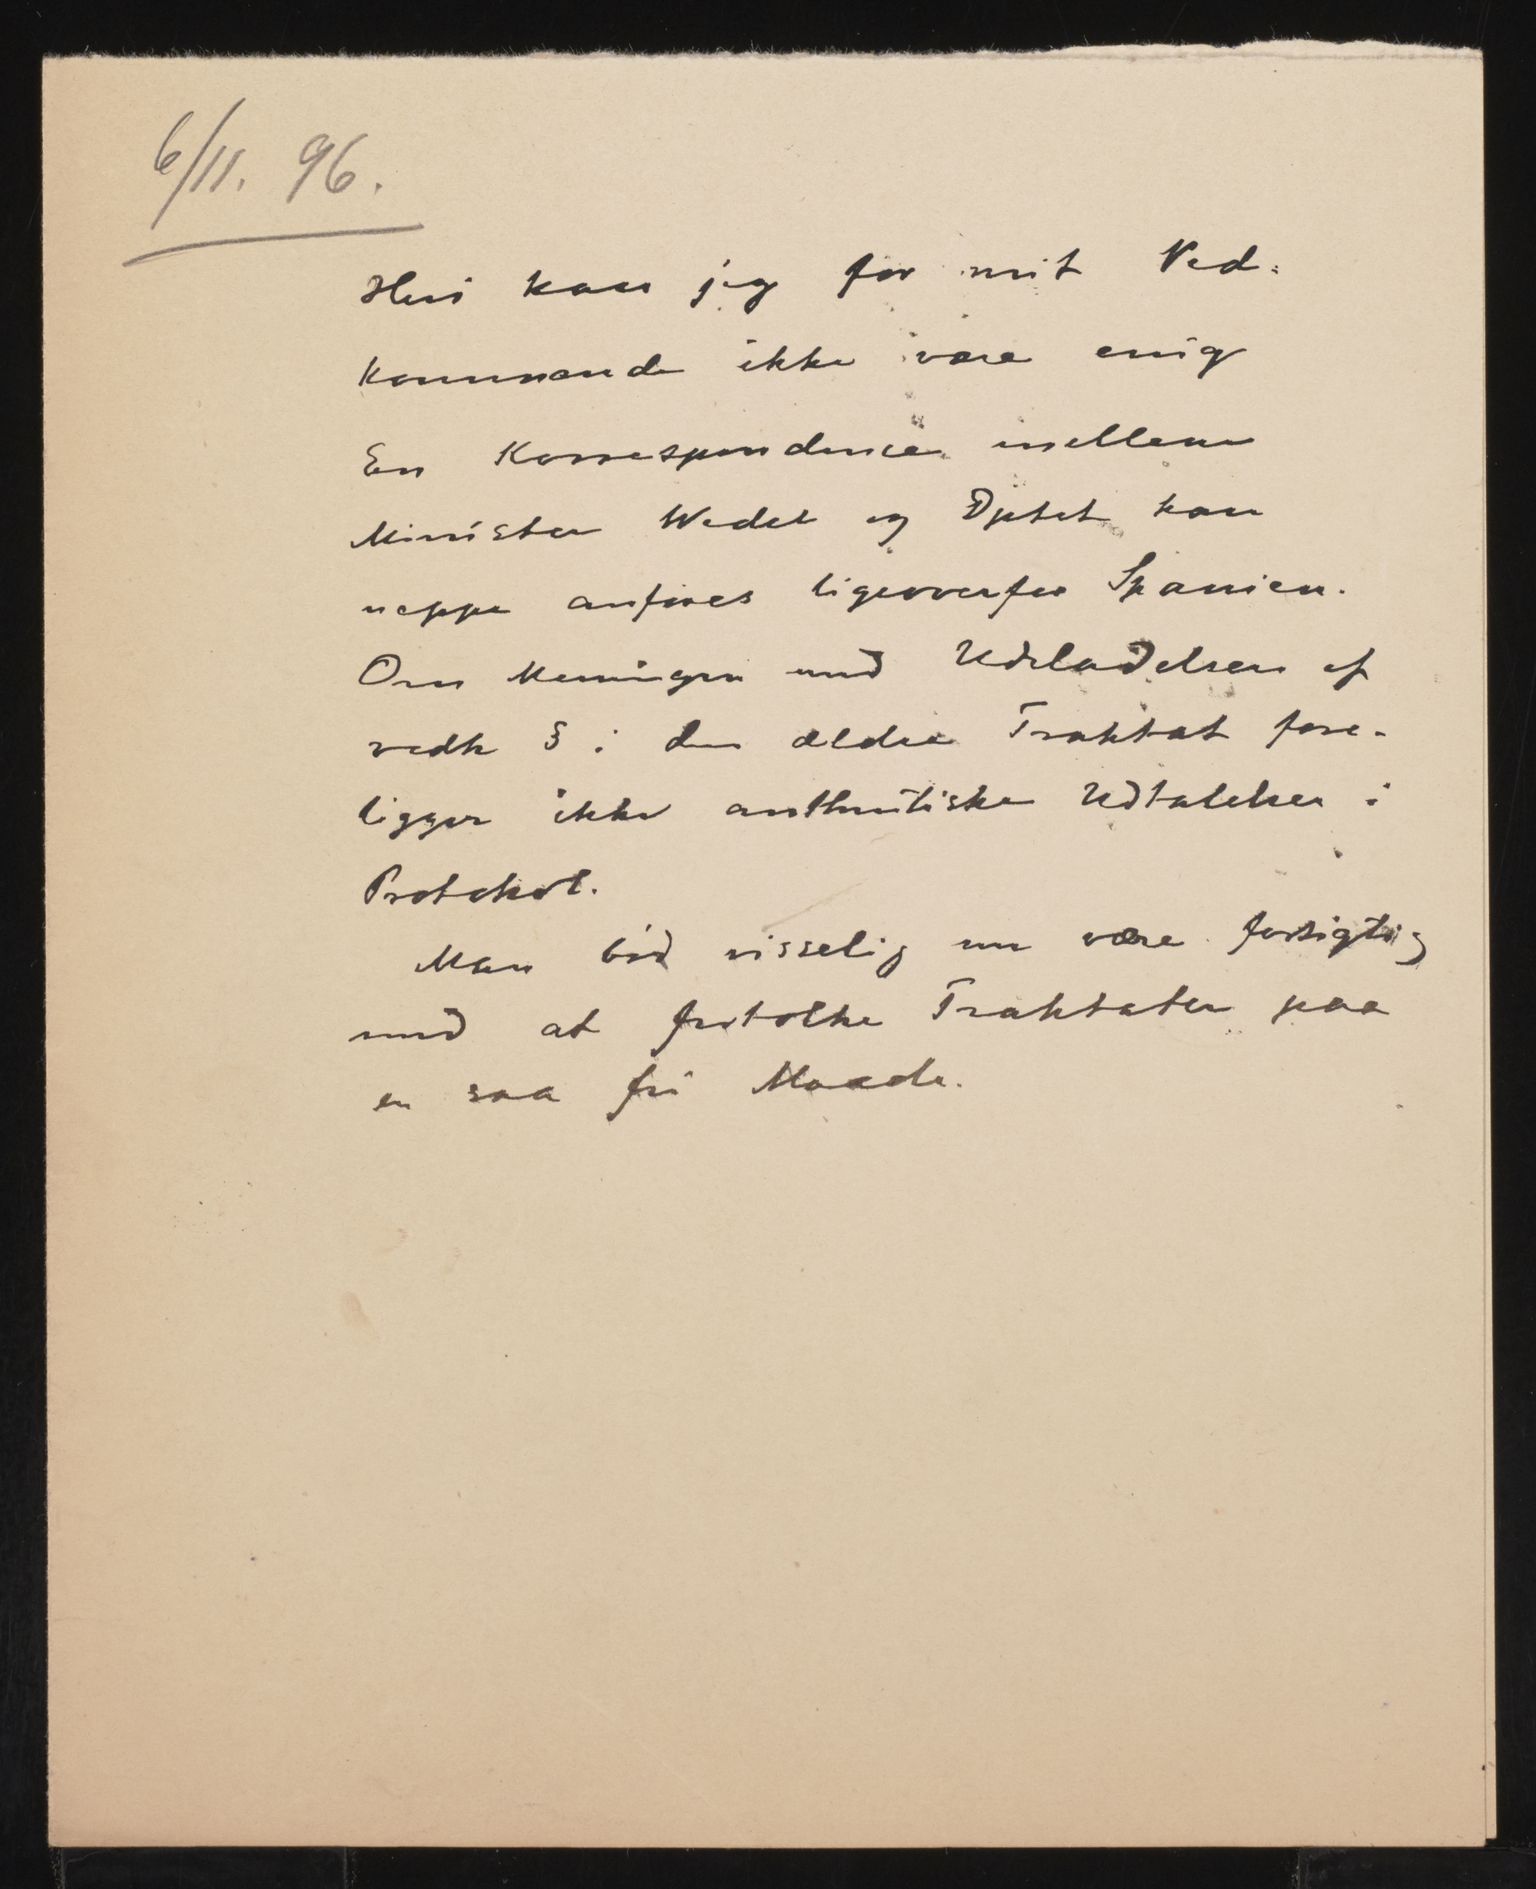 6/11. 96.
Heri kan jeg for mit Ved-
kommende ikke være enig
En Korrespondence mellem
Minister Wedel og Dptet kan
neppe anføres ligeoverfor Spanien.
Om Meningen med Udeladelsen af
vedk § i den ældre Traktat fore-
ligger ikke authentiske Udtalelser i
Protokol.
Man bør visselig nu være forsigtig
med at fortolke Traktater paa
en saa fri Maade.